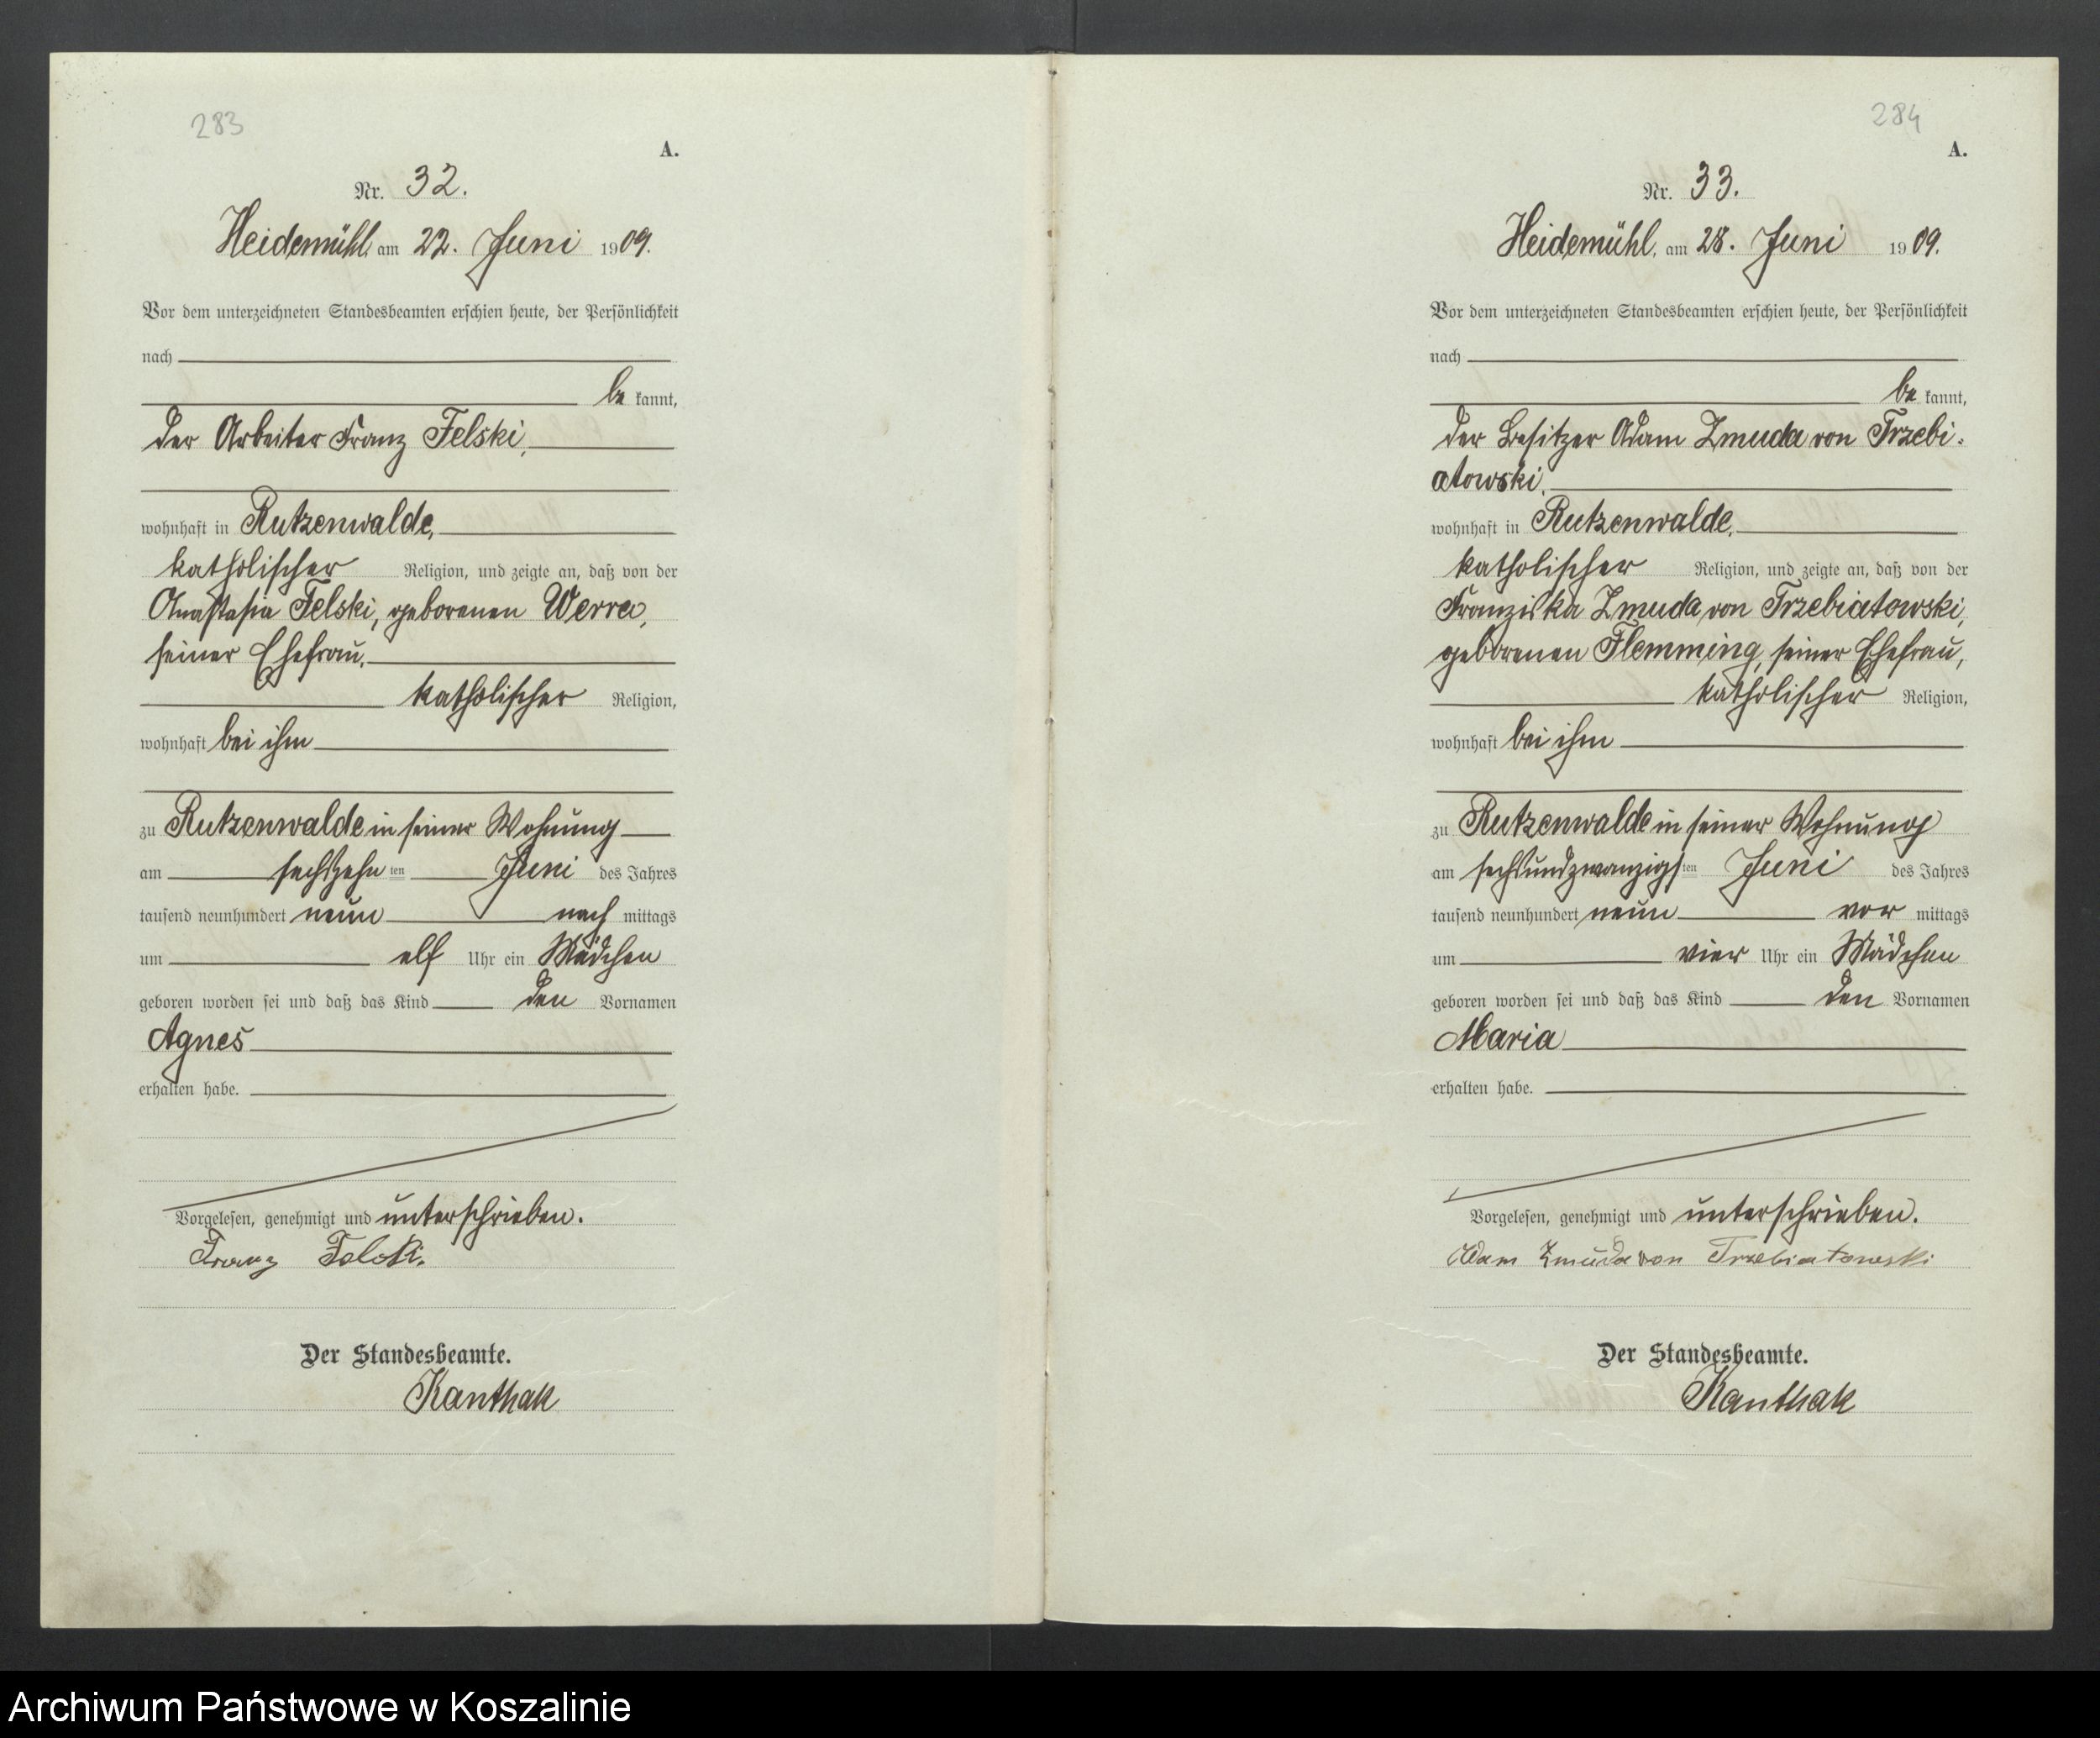 283
A.
Nr. 32.
Heidemühl, am 22. Juni 1909.
Vor dem unterzeichneten Standesbeamten erschien heute, der Persönlichkeit
nach
be kannt,
der Arbeiter Franz Felski,
wohnhaft in Rutzenwalde,
katholischer Religion, und zeigte an, daß von der
Anastasia Felski, geborenen Werra,
seiner Ehefrau,
katholischer Religion,
wohnhaft bei ihm
zu Rutzenwalde in seiner Wohnung
am sechszehn ten Juni des Jahres
tausend neunhundert neun nach mittags
um elf Uhr ein Mädchen
geboren worden sei und daß das Kind den Vornamen
Agnes
erhalten habe.
Vorgelesen, genehmigt und unterschrieben.
Franz Felski.
Der Standesbeamte.
Kanthak
284
A.
Nr. 33.
Heidemühl, am 28. Juni 1909.
Vor dem unterzeichneten Standesbeamten erschien heute, der Persönlichkeit
nach
be kannt,
der Besitzer Adam Zmuda von Trzebi-
atowski,
wohnhaft in Rutzenwalde,
katholischer Religion, und zeigte an, daß von der
Franziska Zmuda von Trzebiatowski,
geborenen Flemming, seiner Ehefrau,
katholischer Religion,
wohnhaft bei ihm
zu Rutzenwalde in seiner Wohnung
am sechsundzwanzigs ten Juni des Jahres
tausend neunhundert neun vor mittags
um vier Uhr ein Mädchen
geboren worden sei und daß das Kind den Vornamen
Maria
erhalten habe.
Vorgelesen, genehmigt und unterschrieben.
Adam Zmuda von Trzebiatowski
Der Standesbeamte.
Kanthak
Archiwum Państwowe w Koszalinie